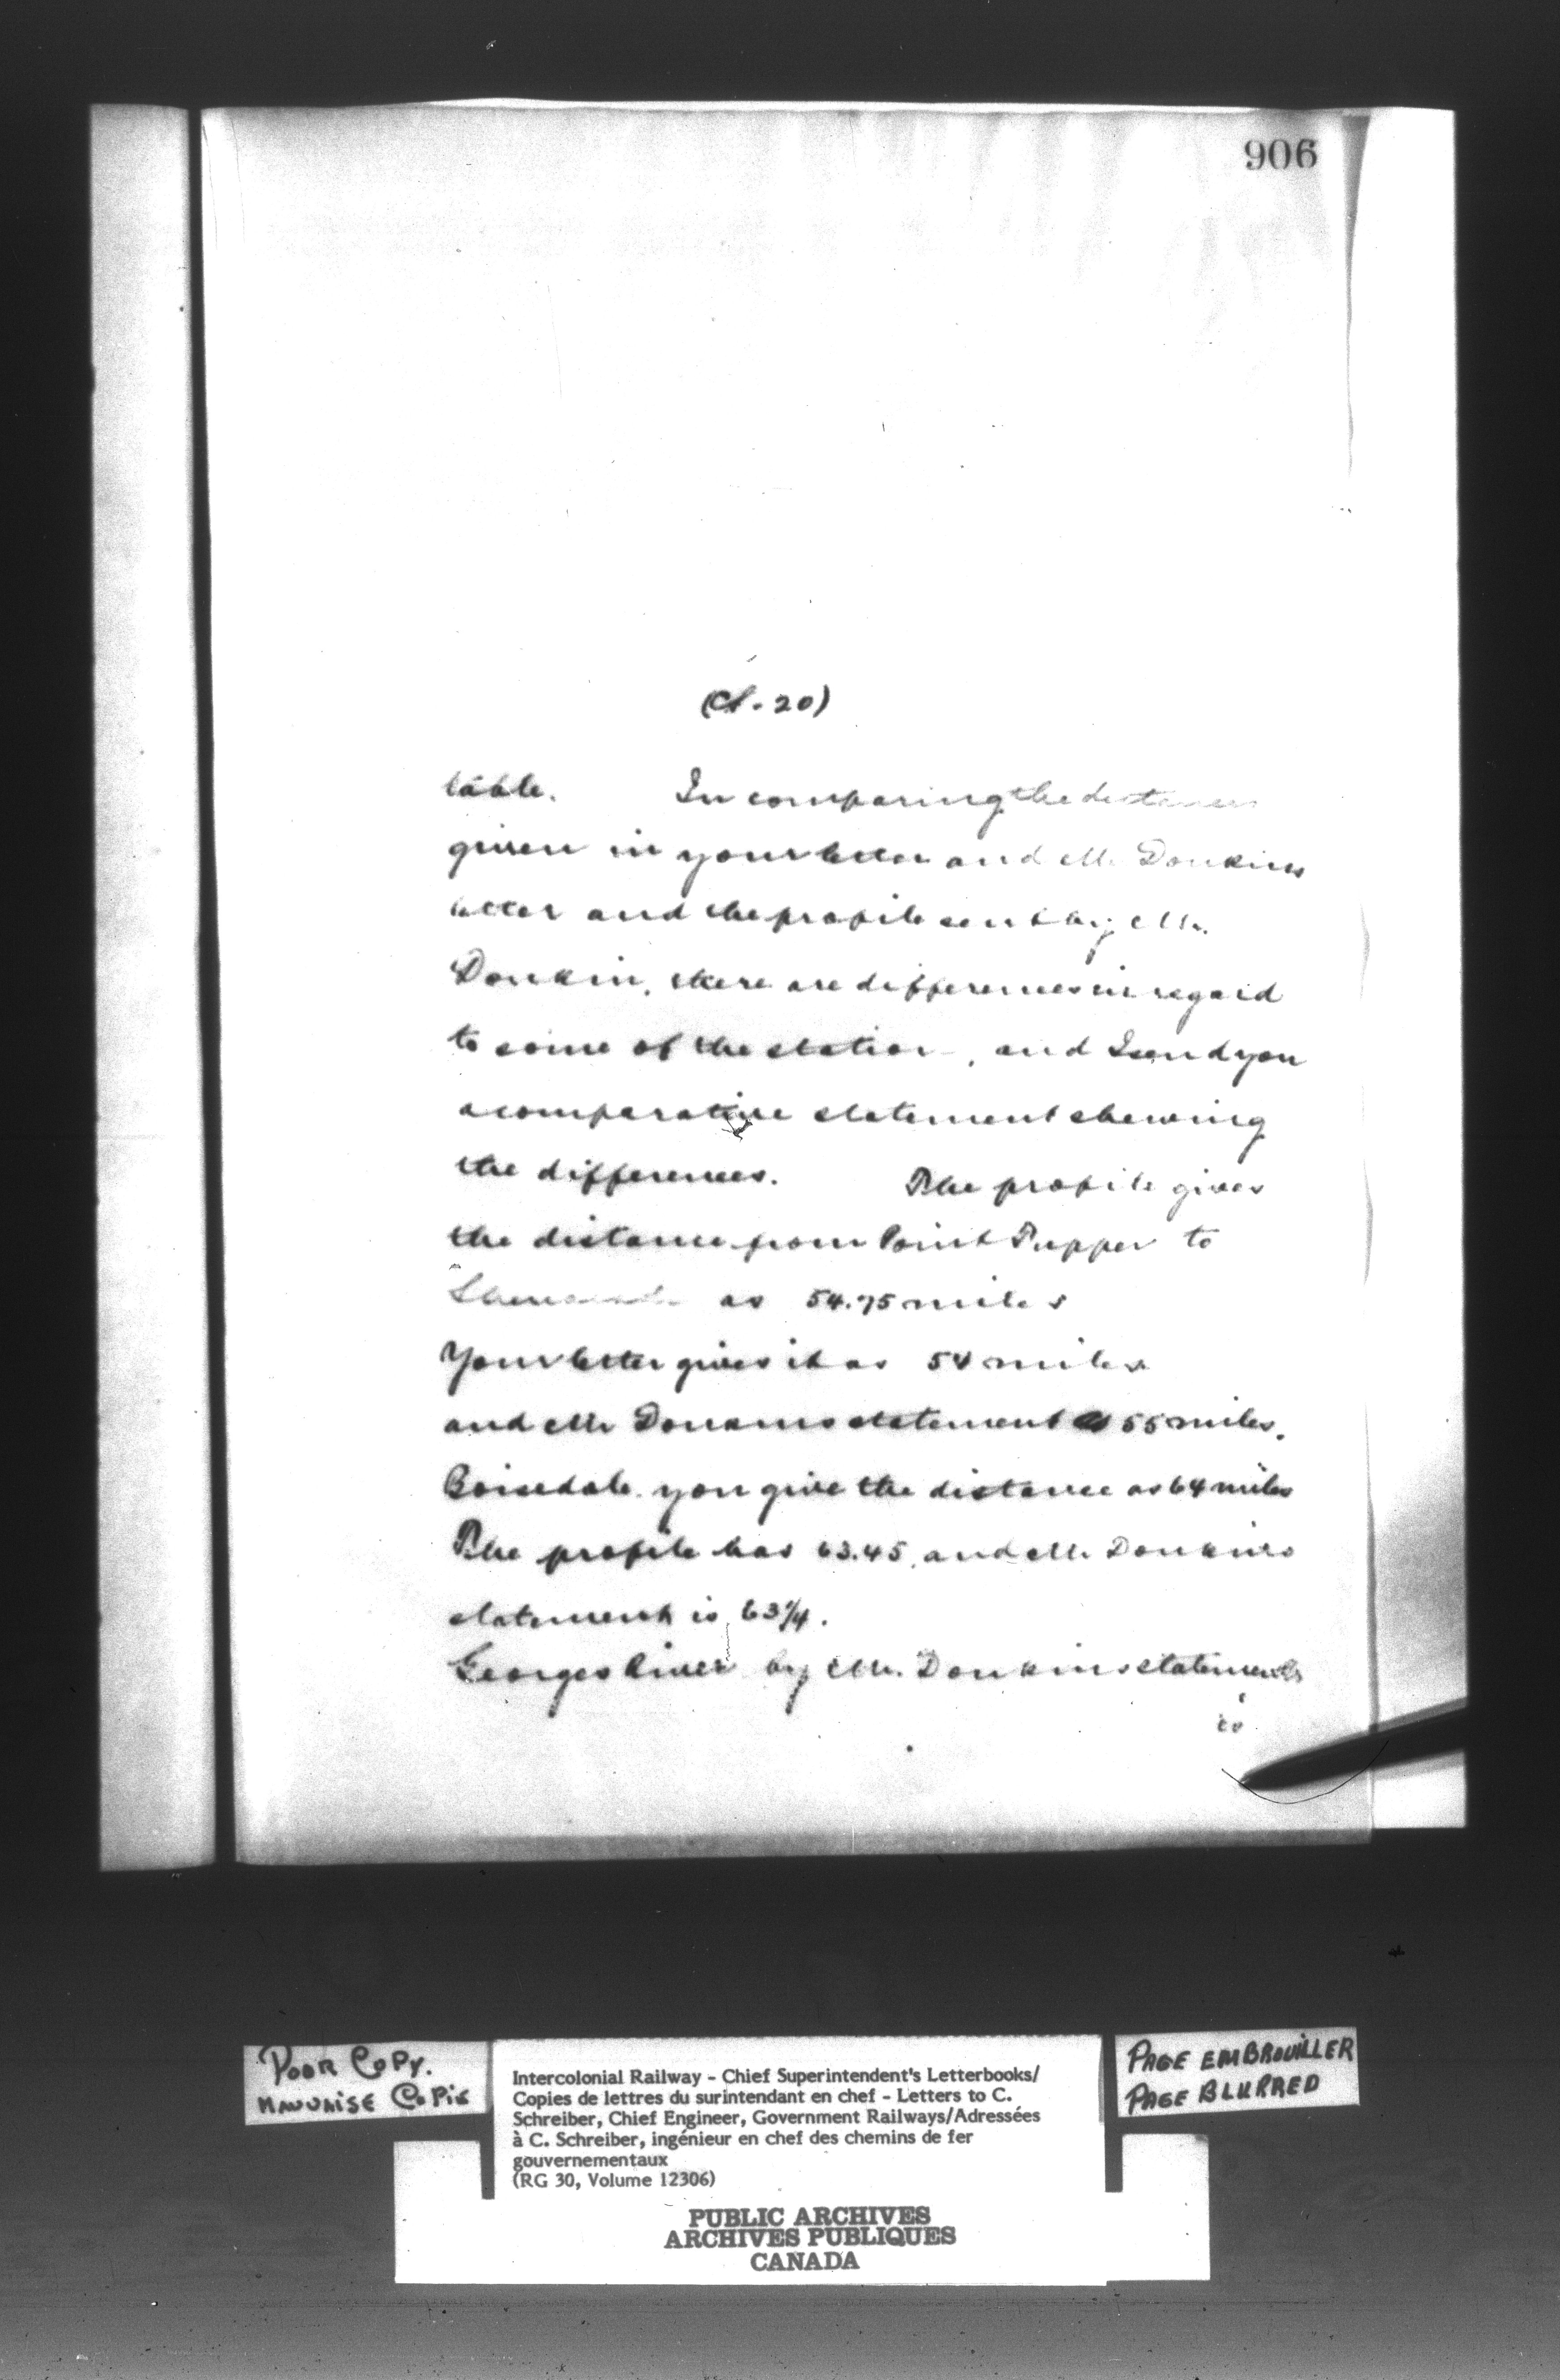 906
(A. 20)
table. In comparing the distances
given in your letter and Mr. Donkins
letter and the profile sent by Mr.
Donkin, there are differences in regard
to some of the station, and I send you
a comparative statement shewing
the differences. The profile gives
the distance from Point Tupper to
as 54.75 miles
Your letter gives it as 54 miles
and Mr Donkins statement as 55 miles.
Boisdale you give the distance as 64 miles
The profile has 63.45, and Mr. Donkins
statement is 63¼.
Georges River by Mr. Donkins statements
is
POOR COPY.
MAUVAISE COPIE
Intercolonial Railway - Chief Superintendent's Letterbooks/
Copies de lettres du surintendant en chef - Letters to C.
Schreiber, Chief Engineer, Government Railways/Adressées
à C. Schreiber, ingénieur en chef des chemins de fer
gouvernementaux
(RG 30, Volume 12306)
PAGE EMBROUILLER
PAGE BLURRED
PUBLIC ARCHIVES
ARCHIVES PUBLIQUES
CANADA